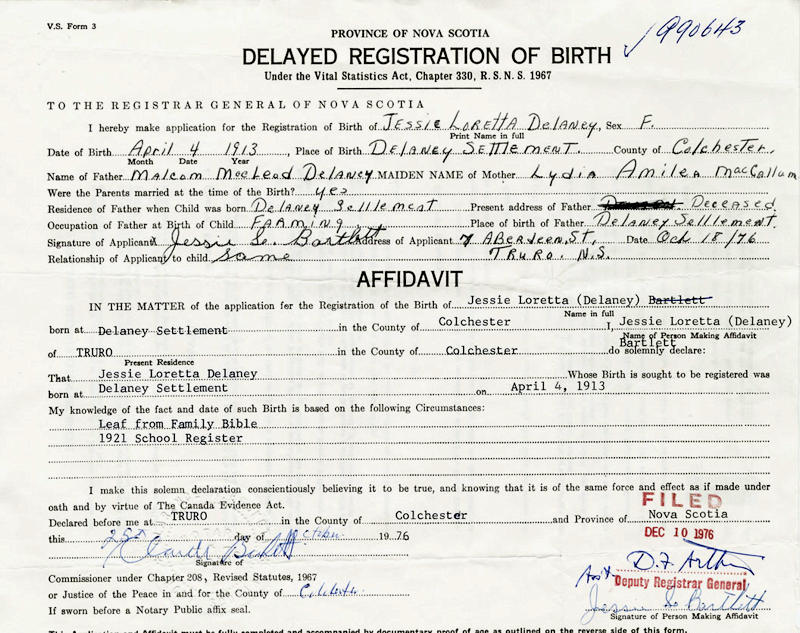 V.S. Form 3
990643
PROVINCE OF NOVA SCOTIA
DELAYED REGISTRATION OF BIRTH
Under the Vital Statistics Act, Chapter 330, R.S.N.S. 1967
TO THE REGISTRAR GENERAL OF NOVA SCOTIA
I hereby make application for the Registration of Birth of Jessie Loretta Delaney, Sex F.
Print Name in full
Date of Birth April 4 1913, Place of Birth Delaney Settlement. County of Colchester,
Month Date Year
Name of Father Malcom MacLeod Delaney MAIDEN NAME of Mother Lydia Amilea MacCallum
Were the Parents married at the time of the Birth? yes
Residence of Father when Child was born Delaney Settlement Present address of Father Deceased
Occupation of Father at Birth of Child FARMING Place of birth of Father Delaney Settlement.
Signature of Applicant Jessie L. Bartlett Address of Applicant 7 Aberdeen St, Date Oct 18/76
Relationship of Applicant to child same TRURO. N.S.
AFFIDAVIT
IN THE MATTER of the application for the Registration of the Birth of Jessie Loretta (Delaney) Bartlett
Name in full
born at Delaney Settlement in the County of Colchester I, Jessie Loretta (Delaney)
Name of Person Making Affidavit
Bartlett
of TRURO in the County of Colchester do solemnly declare:
Present Residence
That Jessie Loretta Delaney Whose Birth is sought to be registered was
born at Delaney Settlement on April 4, 1913
My knowledge of the fact and date of such Birth is based on the following Circumstances:
Leaf from Family Bible
1921 School Register
I make this solemn declaration conscientiously believing it to be true, and knowing that it is of the same force and effect as if made under
oath and by virtue of The Canada Evidence Act.
FILED
Declared before me at TRURO in the County of Colchester and Province of Nova Scotia
DEC 10 1976
this day of October 1976
Signature of
Commissioner under Chapter 208, Revised Statutes, 1967
Ass't Deputy Registrar General
or Justice of the Peace in and for the County of Colchester
Jessie L. Bartlett
Signature of Person Making Affidavit
If sworn before a Notary Public affix seal.
This Application and Affidavit must be fully completed and accompanied by documentary proof of age as outlined on the reverse side of this form.